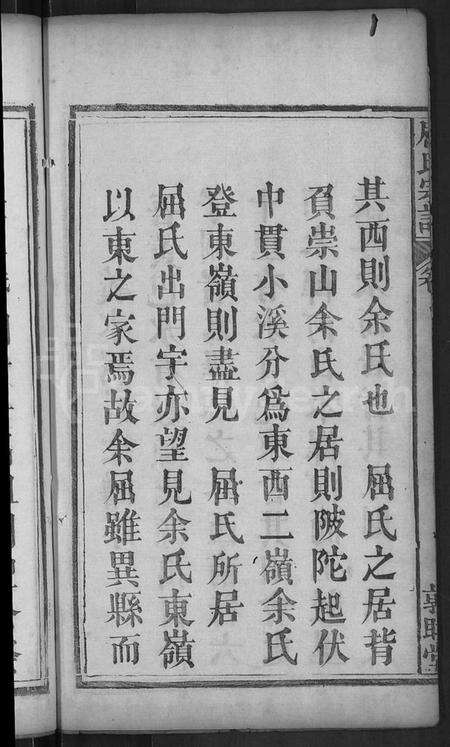 其西則余氏也 屈氏之居背
負崇山余氏之居則陂陀起伏
中貫小溪分爲東西二嶺余氏
登東嶺則盡見 屈氏所居
屈氏出門宇亦望見余氏東嶺
以東之家焉故余屈雖異縣而
屈氏宗譜